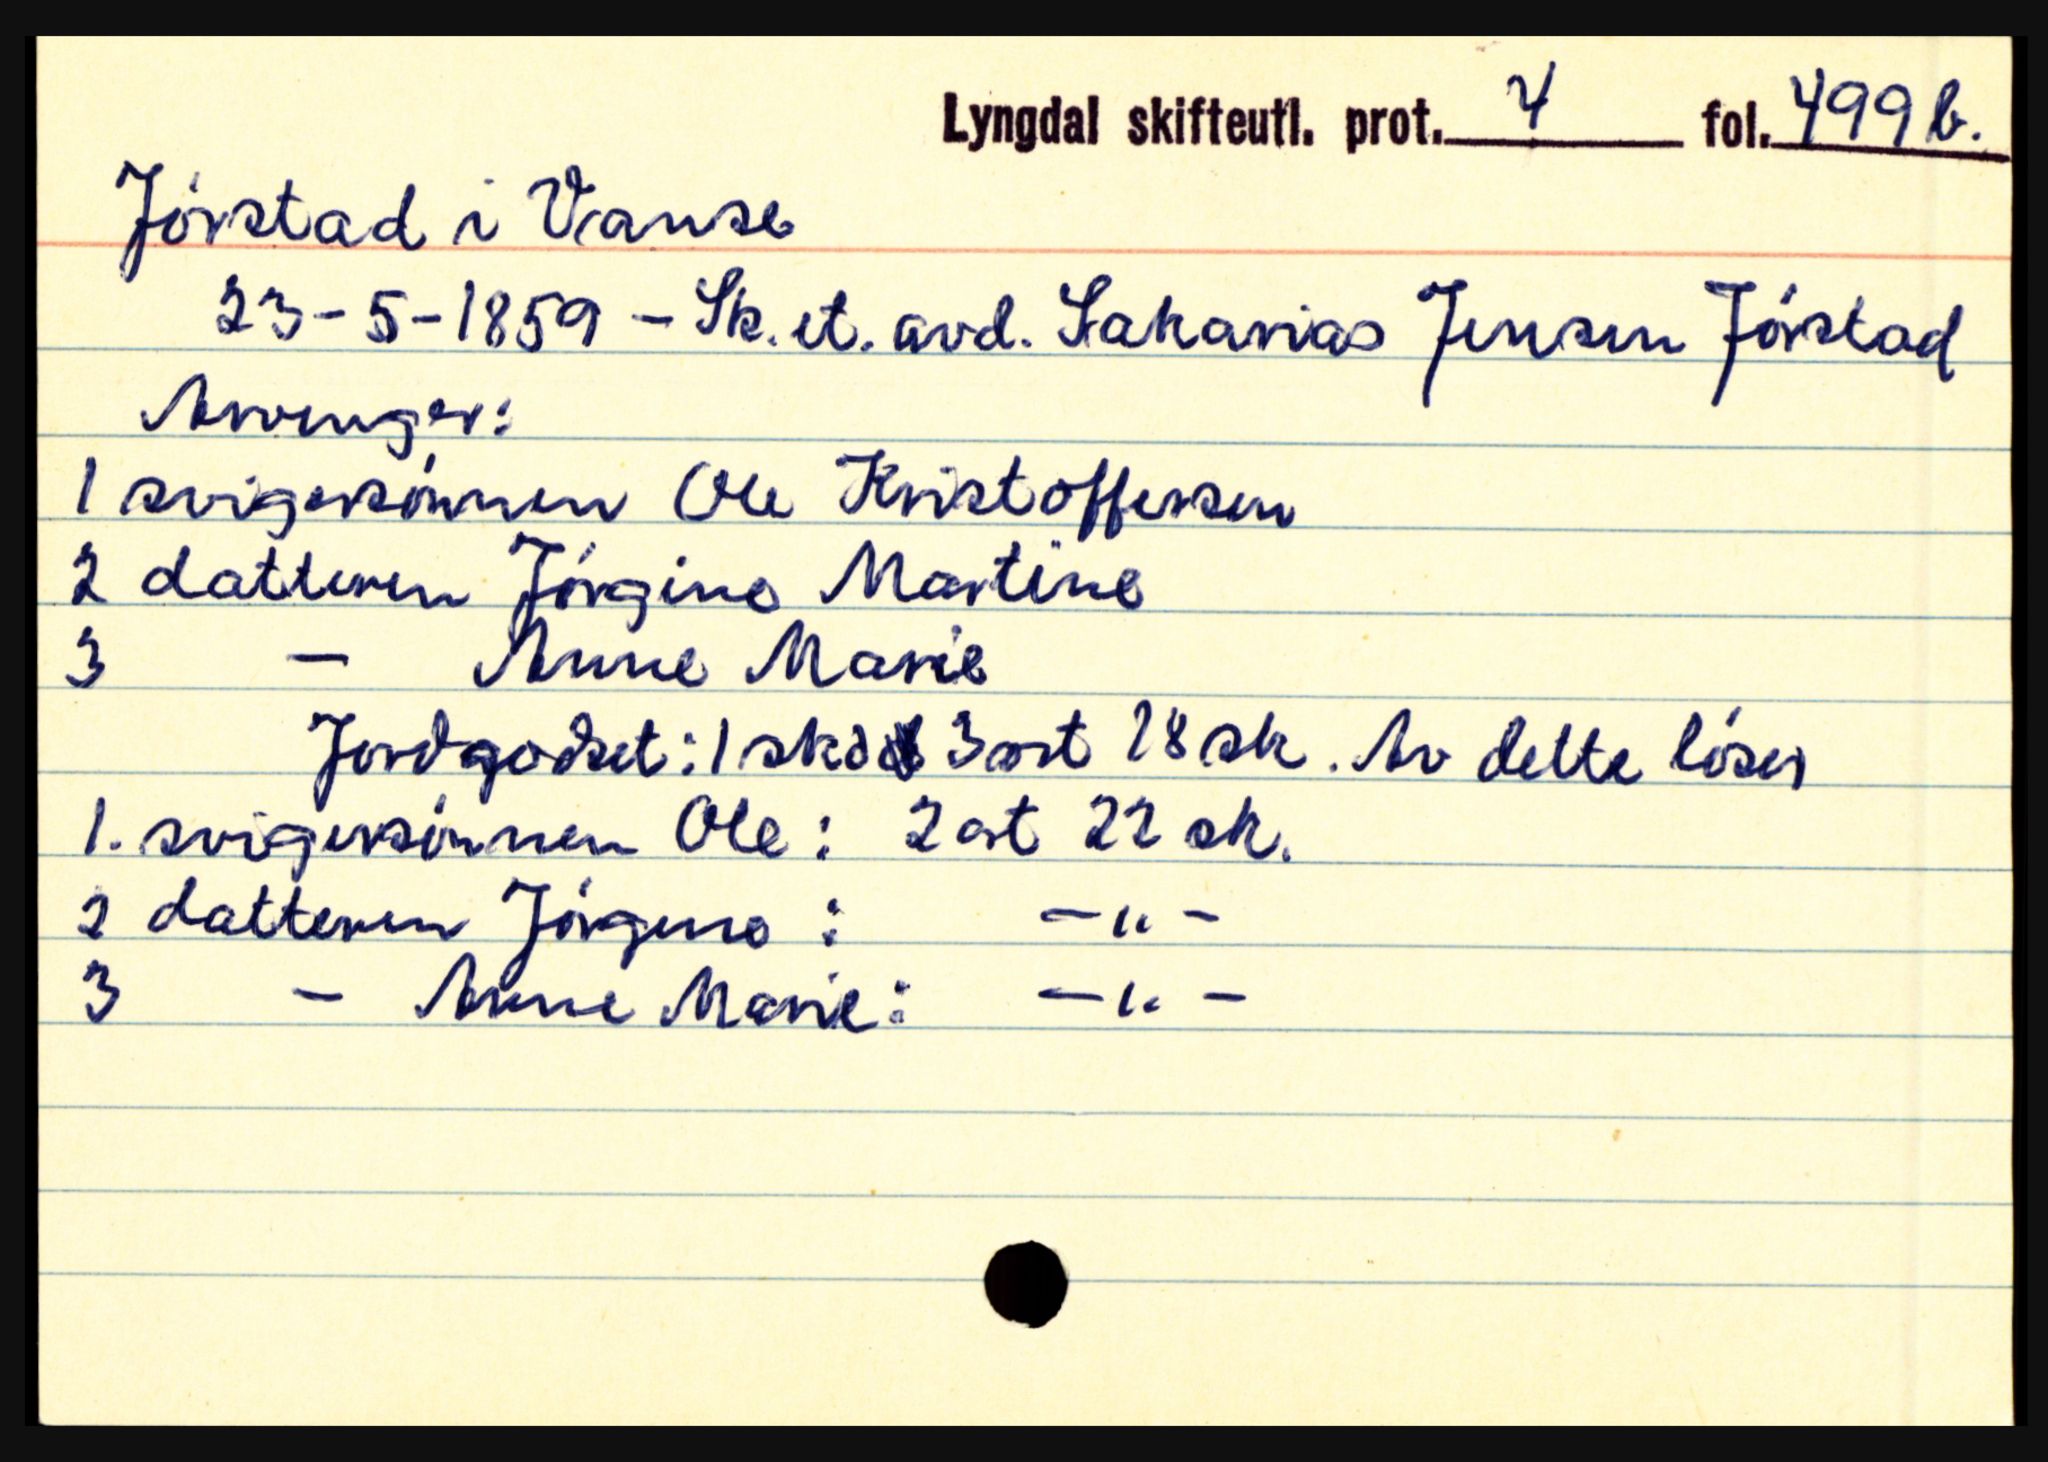 Lyngdal skifteutl. prot. 4 fol. 499 b.
Jórstad i Vanse
23-5-1859 - Sk. et. avd. Sakarias Jensen Jórstad
Arvinger:
1 svigersónnen Ole Kristoffersen
2 datteren Jórgine Martine
3 - Anne Marie
Jordgodset: 1 skd 3 ort 18 sk. Av dette lóser
1. svigersónnen Ole: 2 ort 22 sk.
2 datteren Jórgine : -"-
3 - Anne Marie: -"-